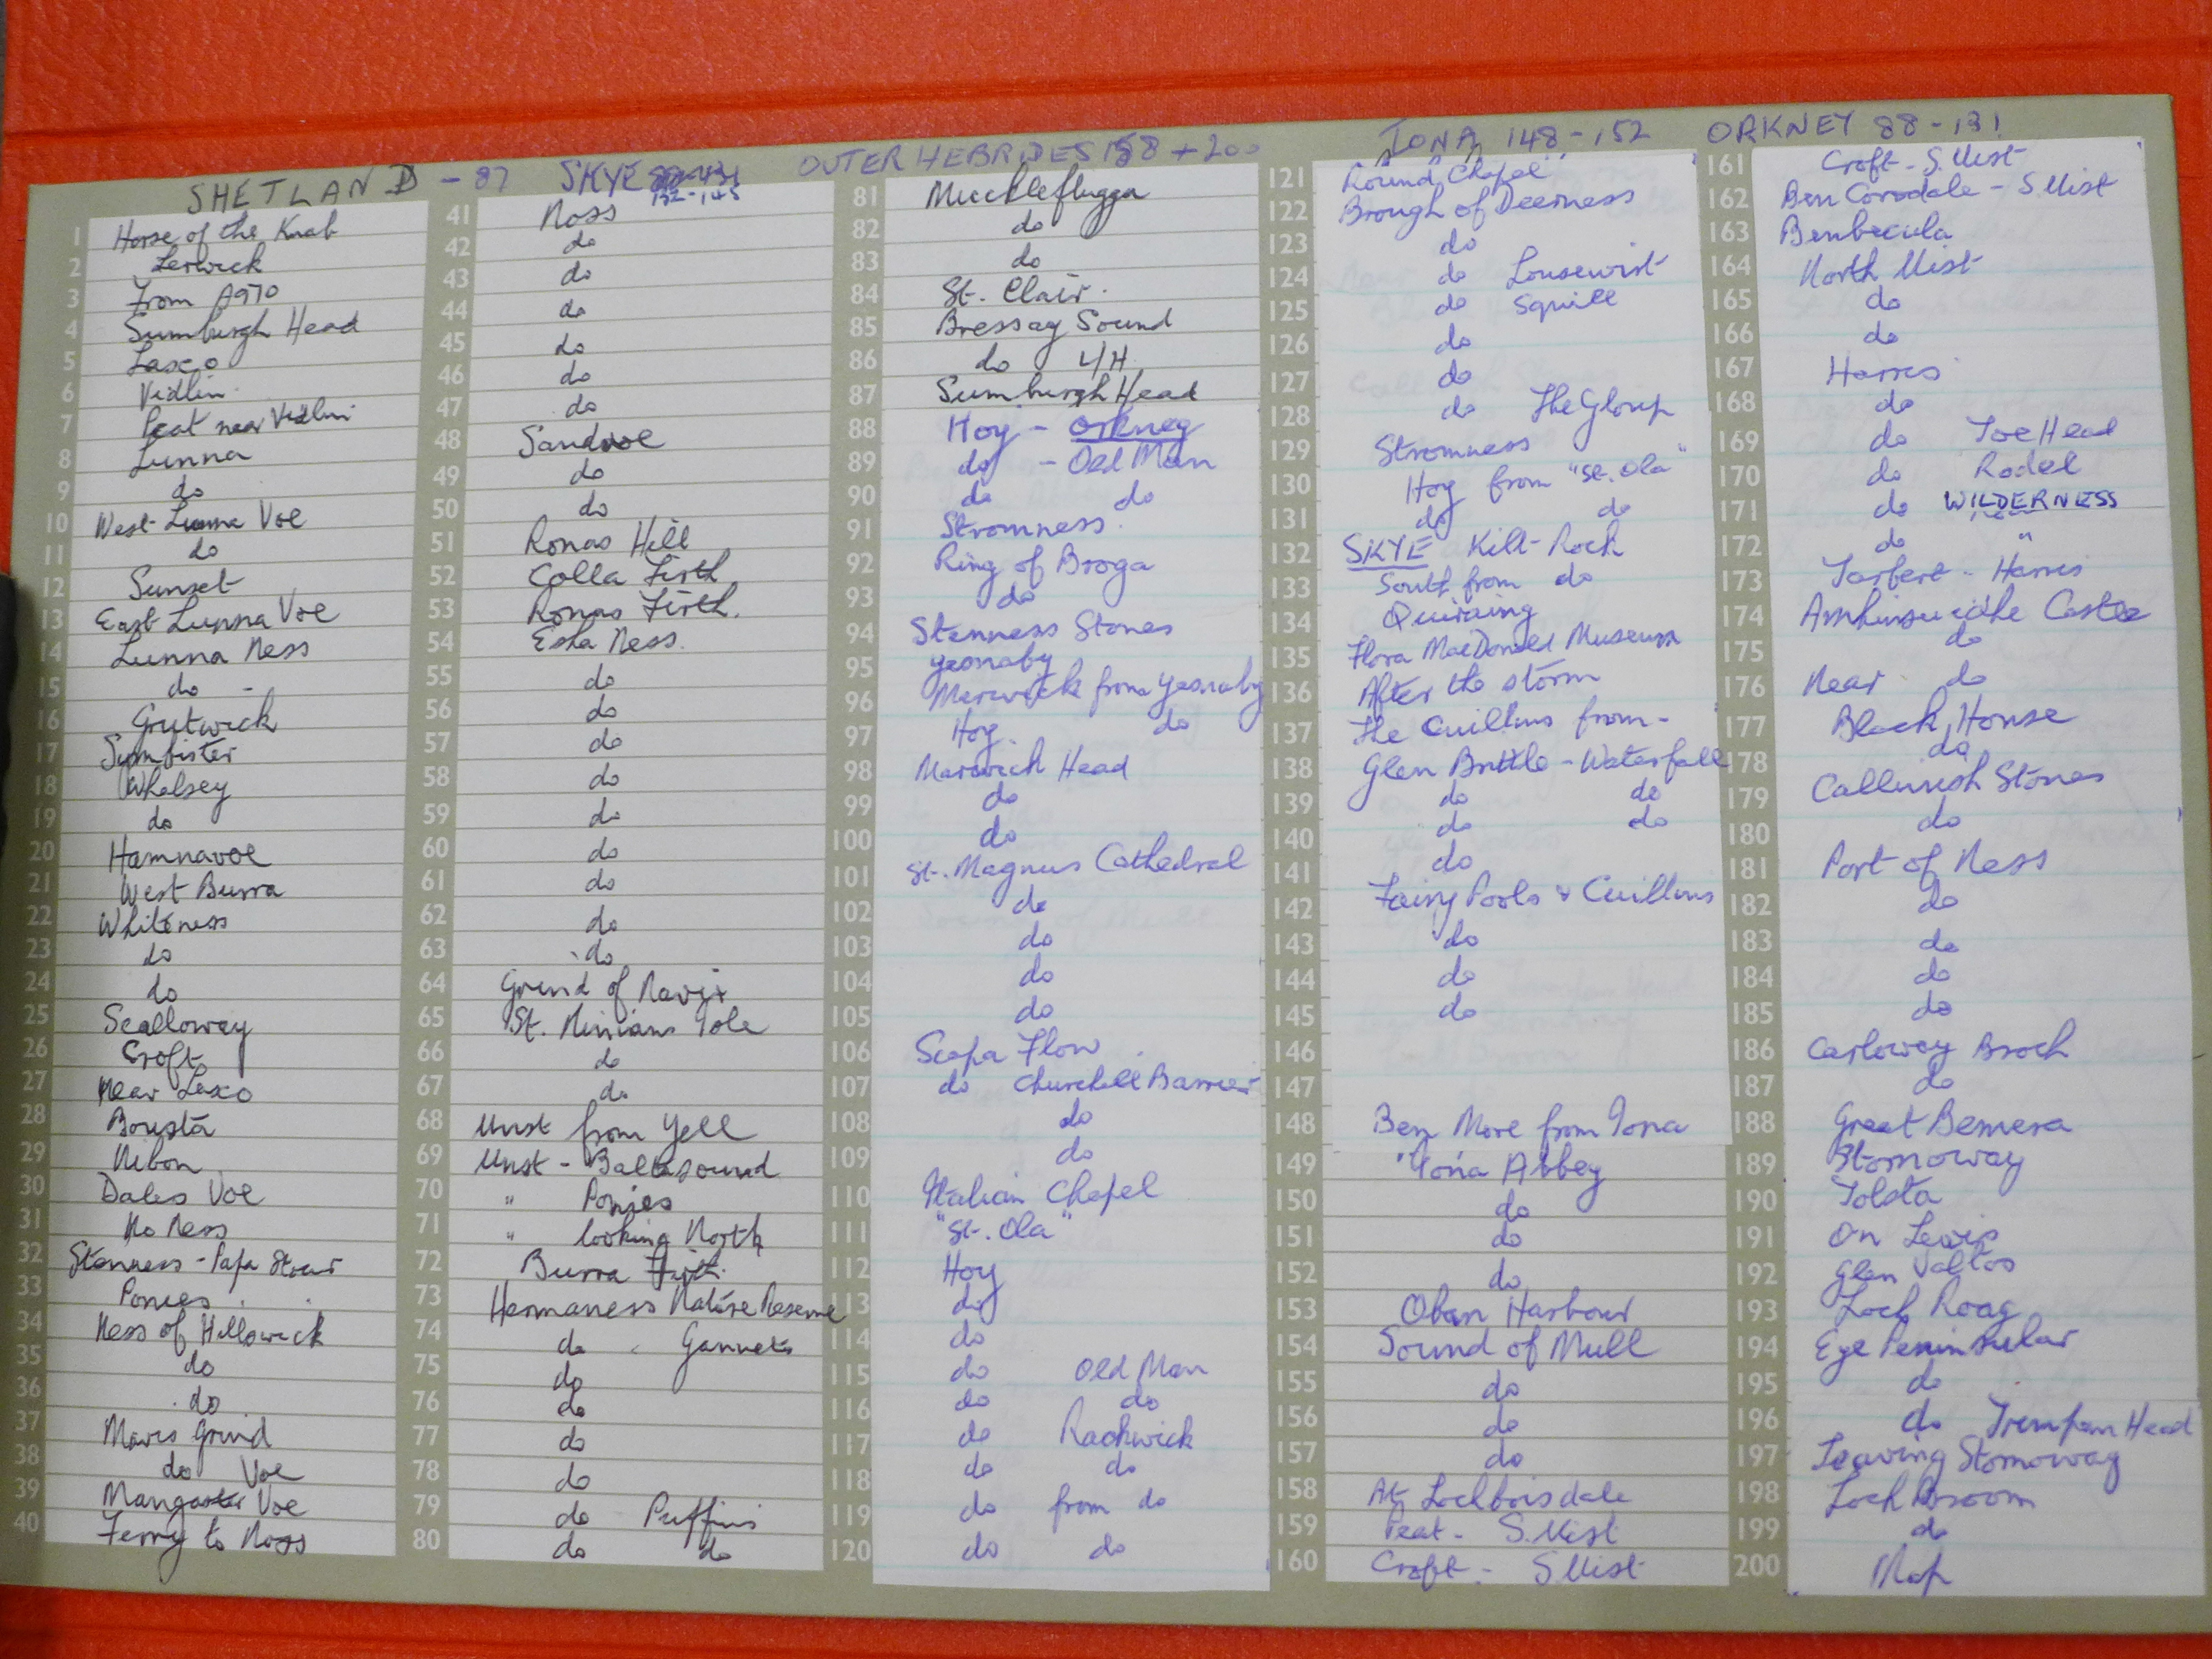 SHETLAND - 87 SKYE 132-145 OUTER HEBRIDES 158 + 200 IONA 148-152 ORKNEY 88-131
1 Horse of the Knab
2 Lerwick
3 From A970
4 Sumburgh Head
5 Laxo
6 Vidlin
7 Peat near Vidlin
8 Lunna
9 do
10 West Lunna Voe
11 do
12 Sunset
13 East Lunna Voe
14 Lunna Ness
15 do -
16 Grutwick
17 Symbister
18 Whalsey
19 do
20 Hamnavoe
21 West Burra
22 Whiteness
23 do
24 do
25 Scalloway
26 Croft
27 Near Laxo
28 Bousta
29 Nibon
30 Dales Voe
31 No Ness
32 Stenness - Papa Stour
33 Ponies
34 Ness of Hillswick
35 do
36 do
37 Mavis Grind
38 do Voe
39 Mangaster Voe
40 Ferry to Noss
41 Noss
42 do
43 do
44 do
45 do
46 do
47 do
48 Sandvoe
49 do
50 do
51 Ronas Hill
52 Colla Firth
53 Ronas Firth.
54 Esha Ness.
55 do
56 do
57 do
58 do
59 do
60 do
61 do
62 do
63 do
64 Grind of Navir
65 St. Ninians Isle
66 do
67 do
68 Unst from Yell
69 Unst - Baltasound
70 " Ponies
71 " looking North
72 Burra Firth.
73 Hermaness Nature Reserve
74 do Gannets
75 do
76 do
77 do
78 do
79 do Puffins
80 do do
81 Muckleflugga
82 do
83 do
84 St. Clair.
85 Bressay Sound
86 do L/H
87 Sumburgh Head
88 Hoy - Orkney
89 do - Old Man
90 do do
91 Stromness.
92 Ring of Broga
93 do
94 Stenness Stones
95 Yesnaby
96 Marwick from Yesnaby
97 Hoy do
98 Marwick Head
99 do
100 do
101 St. Magnus Cathedral
102 do
103 do
104 do
105 do
106 Scapa Flow
107 do Churchill Barrier
108 do
109 do
110 Italian Chapel
111 "St. Ola"
112 Hoy
113 do
114 do
115 do Old Man
116 do do
117 do Rackwick
118 do do
119 do from do
120 do do
121 Round Chapel
122 Brough of Deerness
123 do
124 do Lousewort
125 do Squill
126 do
127 do
128 do The Gloup
129 Stromness
130 Hoy from "St. Ola"
131 do do
132 SKYE Kilt-Rock
133 South from do
134 Quiraing
135 Flora MacDonald Museum
136 After the storm
137 The Cuillins from -
138 Glen Brittle - Waterfall
139 do do
140 do do
141 do
142 Fairy Pools & Cuillins
143 do
144 do
145 do
146
147
148 Ben More from Iona
149 Iona Abbey
150 do
151 do
152 do
153 Oban Harbour
154 Sound of Mull
155 do
156 do
157 do
158 At Lochboisdale
159 Peat - S. Uist
160 Croft - S Uist
161 Croft - S. Uist
162 Ben Corodale - S Uist
163 Benbecula
164 North Uist
165 do
166 do
167 Harris
168 do
169 do Toe Head
170 do Rodel
171 do WILDERNESS
172 do "
173 Tarbert - Harris
174 Amhinsuidhe Castle
175 do
176 Near do
177 Black House
178 do
179 Callinish Stones
180 do
181 Port of Ness
182 do
183 do
184 do
185 do
186 Carloway Broch
187 do
188 Great Bernera
189 Stornoway
190 Tolsta
191 On Lewis
192 Glen Valtos
193 Loch Roag
194 Eye Peninsular
195 do
196 do Tiumpan Head
197 Leaving Stornoway
198 Loch Broom
199 do
200 Map